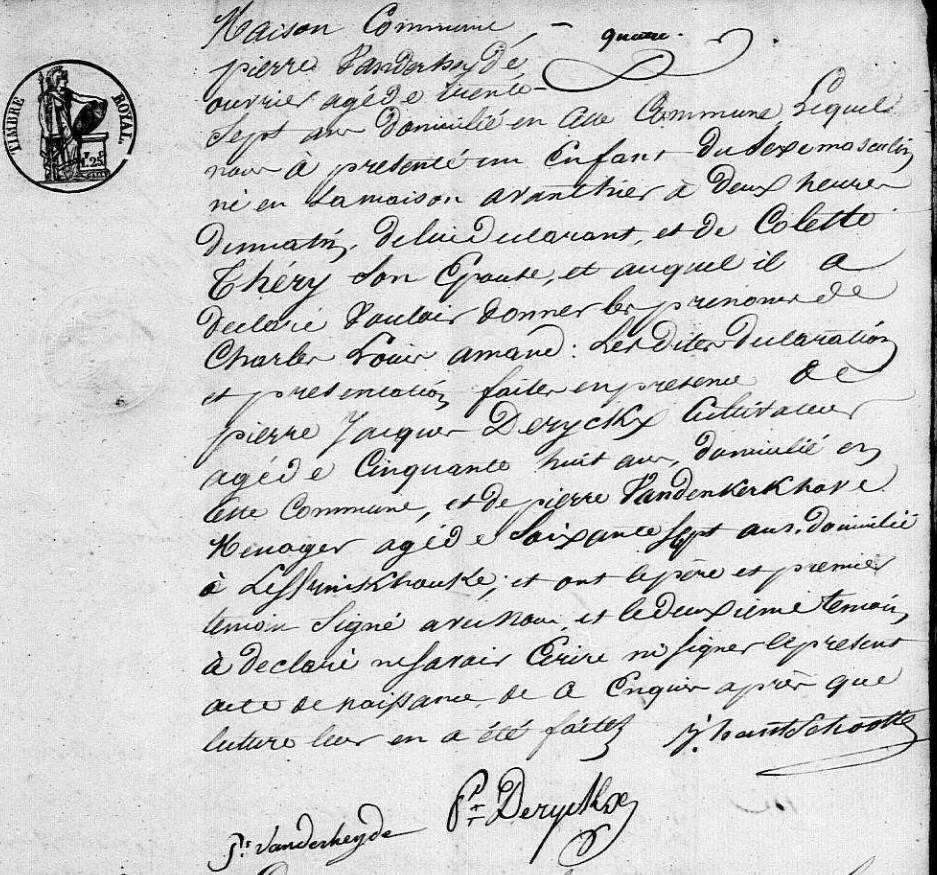 TIMBRE ROYAL.
1.F 25.C
Maison Commune, -
pierre Vanderheyde
ouvrier agé de trente-
sept ans domicilié en cette Commune Lequel
nous à présenté un Enfant du Sexe masculin
né en Sa maison avanthier à deux heures
du matin, de lui declarant, et de Colette
Théry Son Epouse, et auquel il a
declaré Vouloir donner les prenoms de
Charles Louis amand : Les dites declaration
et presentation faites en presence de
pierre Jacques Deryckx Cultivateur
agé de Cinquante huit ans, domicilié en
cette Commune, et de pierre Vandenkerkhove
Menager agé de Soixante Sept ans, domicilié
à Leffrinckhouke ; et ont le père et premier
temoin Signé avec nous, et le deuxieme temoin
à declaré ne savoir Ecrire ni signer le present
acte de naissance, de a Enquis après que
lecture leur en a été faite
P.re Deryckx
P.re Vanderheyde